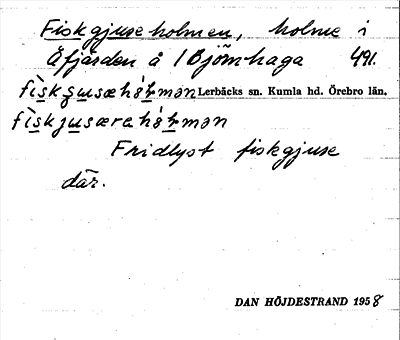 Fiskgjuseholmen, holme i
Åfjärden å 1 Björnhaga 491.
Lerbäcks sn. Kumla hd. Örebro län.
Fridlyst fiskgjuse
där.
DAN HÖJDESTRAND 1958